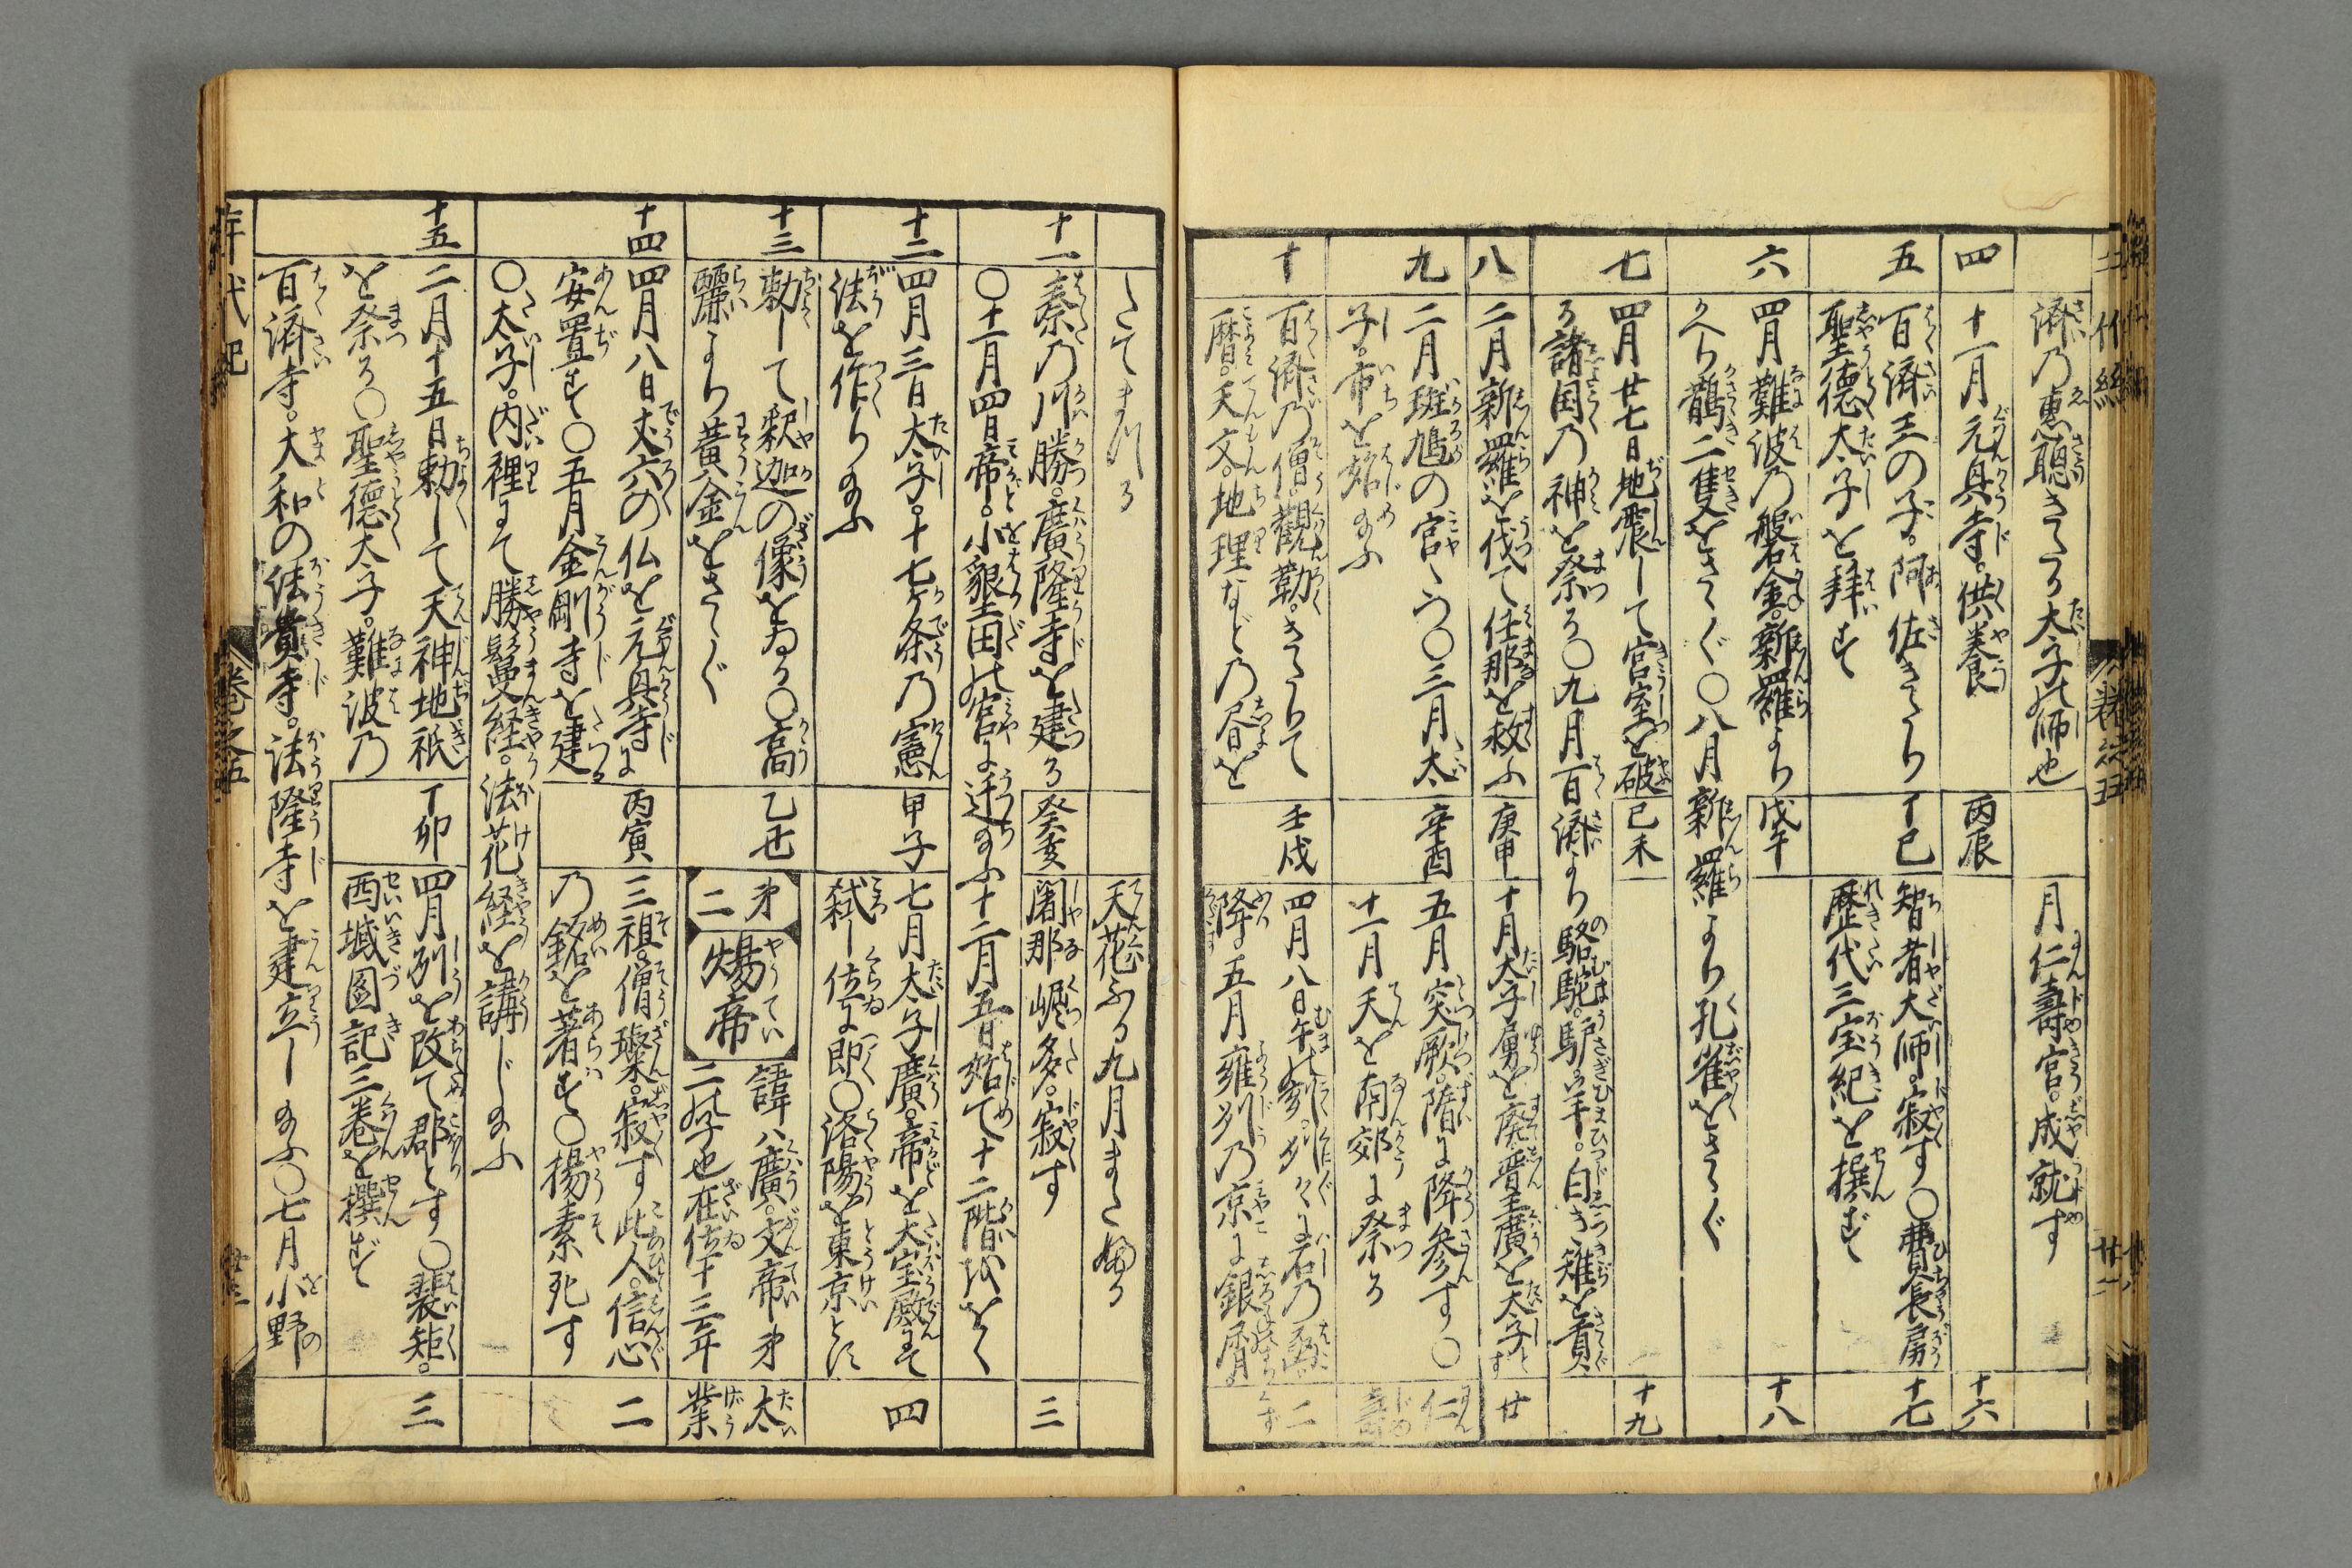 済乃惠聰きたる太子の師也
月仁壽宮。成就す
四
十一月元興寺。供養
丙辰
十六
五
百済王の子。阿佐きたり
聖德太子を拝す
丁巳
智者大師。寂す〇費長房
歴代三宝紀を撰ず
十七
六
四月難波乃磐金。新羅より
かへり鵲二隻をさゝぐ〇八月新羅より孔雀をさゝぐ
戊午
十八
七
四月廿七日地震して宮室を破
る諸国乃神を祭る〇九月百済より駱駝。驢。羊。白き雉を貢
己未
十九
八
二月新羅を伐て任那を救ふ
庚申
十月太子勇を廃晋王廣を太子とす
廿
九
二月斑鳩の宮へうつ〇三月太
子。市を始め給ふ
辛酉
五月突厥。隋に降参す〇
十一月天を南郊に祭る
仁壽
十
百済乃僧。觀勒。きたりて
暦。天文。地理などの昼を
壬戌
四月八日午の刻。
降。五月雍州乃京に銀屑。
二
たてまつる
天花ふる九月また如る
十一
秦乃川勝。廣隆寺を建る
〇十一月四日帝。小墾田の宮に迁給ふ十二月五日始て十二階の位をく
癸亥
闍那崛多。寂す
三
十二
四月三日太子。十七ヶ条乃憲
法を作り給ふ
甲子
七月太子廣。帝を大宝殿にて
弑し位に即〇洛陽を東京とす
四
十三
勅して釈迦の像をゐる〇高
麗より黄金をさゝぐ
乙丑
第二
煬帝
諱ハ廣。文帝第
二の子也在位十三年
太業
十四
四月八日丈六の仏を元興寺に
安置す〇五月金剛寺を建
〇太子。内裡にて勝鬘経。法花経を講じ給ふ
丙寅
三祖。僧璨。寂す此人。信心
乃銘を著す〇楊素死す
二
十五
二月十五日勅して天神地祇
を祭る〇聖德太子。難波乃
百済寺。大和の法貴寺。法隆寺を建立し給ふ〇七月小野
丁卯
四月州を改て郡とす〇裴矩。
西域圖記三巻を撰ず
三
年代記
卷之五